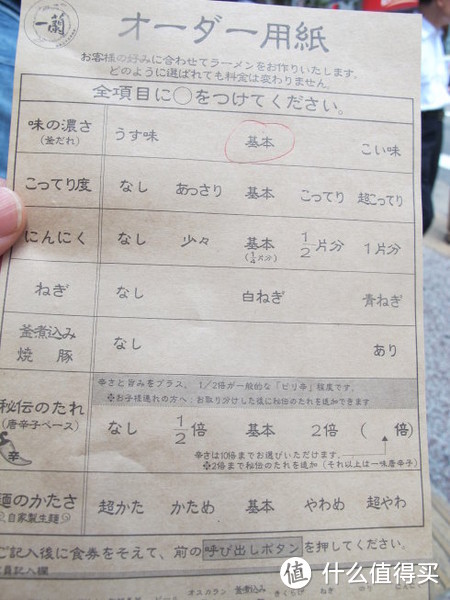 一蘭
オーダー用紙
お客様の好みに合わせてラーメンをお作りいたします。
どのように選ばれても料金は変わりません。
全項目に○をつけてください。
味の濃さ
(釜だれ)
うす味 基本 こい味
こってり度 なし あっさり 基本 こってり 超こってり
にんにく なし 少々 基本 1/2片分 1片分
(1/4片分)
ねぎ なし 白ねぎ 青ねぎ
釜煮込み
焼豚
なし あり
辛さと旨みをプラス。 1/2倍が一般的な「ピリ辛」程度です。
※お子様連れの方へ:お取り分けした後に秘伝のたれを追加できます
秘伝のたれ
(唐辛子ベース)
辛
なし 1/2倍 基本 2倍 ( 倍)
辛さは10倍までお選びいただけます。
※2倍まで秘伝のたれを追加(それ以上は一味唐辛子)
麺のかたさ
自家製生麺
超かた かため 基本 やわめ 超やわ
ご記入後に食券をそえて、前の呼び出しボタンを押してください。
員記入欄
オスカラン 釜煮込み きくらげ ねぎ
值 什么值得买